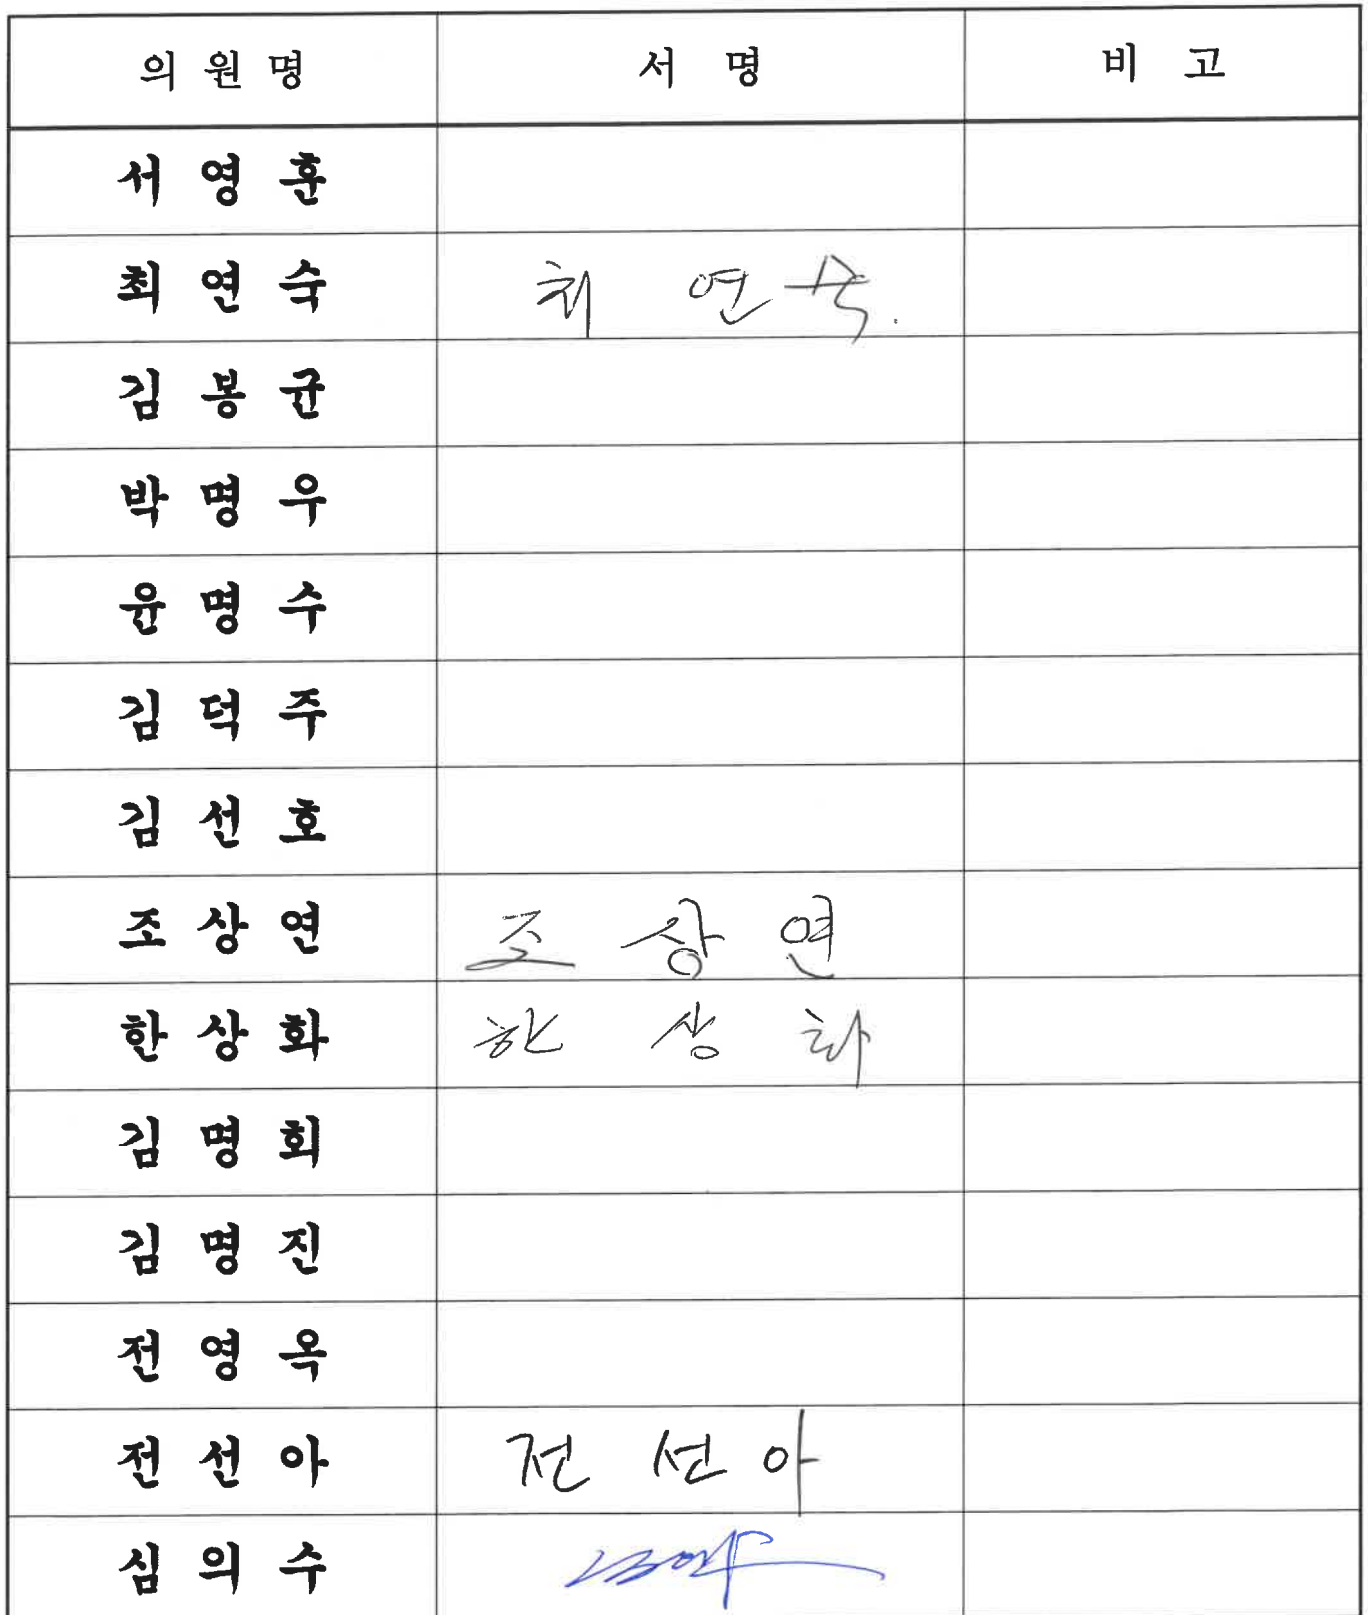 의 원 명 서 명 비 고
서 영 훈
최 연 숙 최 연 숙.
김 봉 균
박 명 우
윤 명 수
김 덕 주
김 선 호
조 상 연 조 상 연
한 상 화 한 상 화
김 명 회
김 명 진
전 영 옥
전 선 아 전 선 아
심 의 수